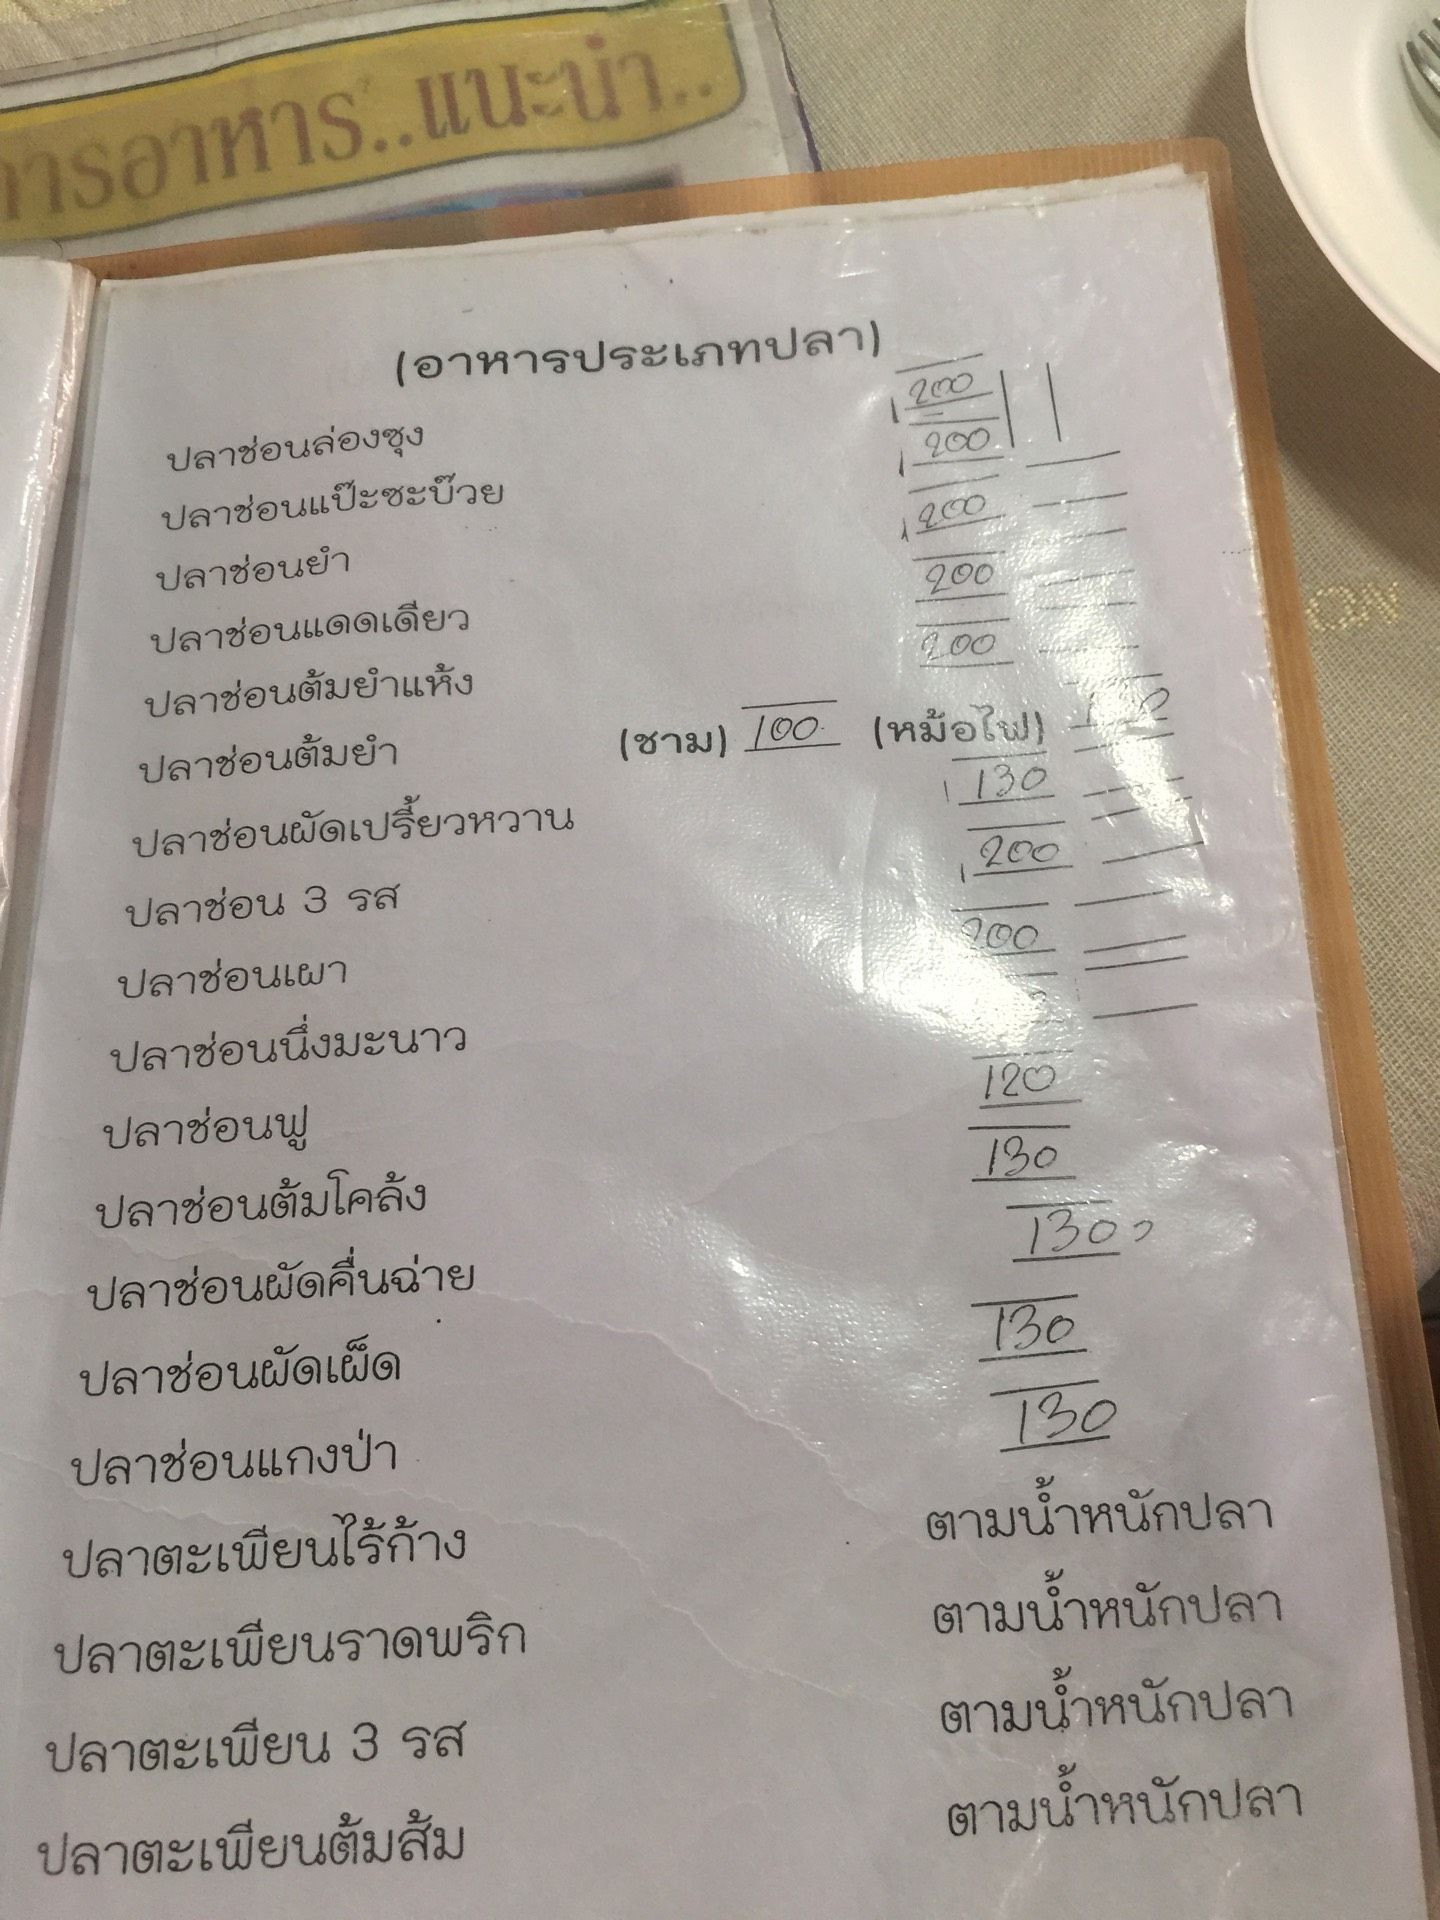 การอาหาร..แนะนำ..
(อาหารประเภทปลา)
ปลาช่อนล่องซุง 200
ปลาช่อนแป๊ะซะบ๊วย 200
ปลาช่อนยำ 200
ปลาช่อนแดดเดียว 200
ปลาช่อนต้มยำแห้ง 200
ปลาช่อนต้มยำ (ชาม) 100 (หม้อไฟ)
ปลาช่อนผัดเปรี้ยวหวาน 130
ปลาช่อน 3 รส 200
ปลาช่อนเผา 200
ปลาช่อนนึ่งมะนาว
ปลาช่อนฟู 120
ปลาช่อนต้มโคล้ง 130
ปลาช่อนผัดคื่นฉ่าย 130
ปลาช่อนผัดเผ็ด 130
ปลาช่อนแกงป่า 130
ปลาตะเพียนไร้ก้าง ตามน้ำหนักปลา
ปลาตะเพียนราดพริก ตามน้ำหนักปลา
ปลาตะเพียน 3 รส ตามน้ำหนักปลา
ปลาตะเพียนต้มส้ม ตามน้ำหนักปลา